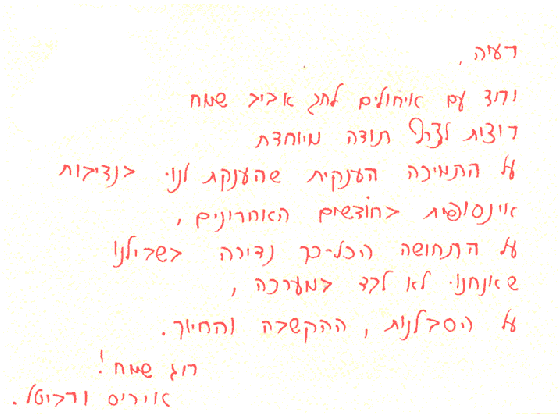 רעיה,
ורוד עם איחולים לחג אביב שמח
רוצות לצרף תודה מיוחדת
על התמיכה הענקית שהענקת לנו בנדיבות
אינסופית בחודשים האחרונים,
על התחושה הכל-כך נדירה בשבילנו
שאנחנו לא לבד במערכה,
על הסבלנות, ההקשבה והחיוך.
חג שמח!
איריס ורביטל.